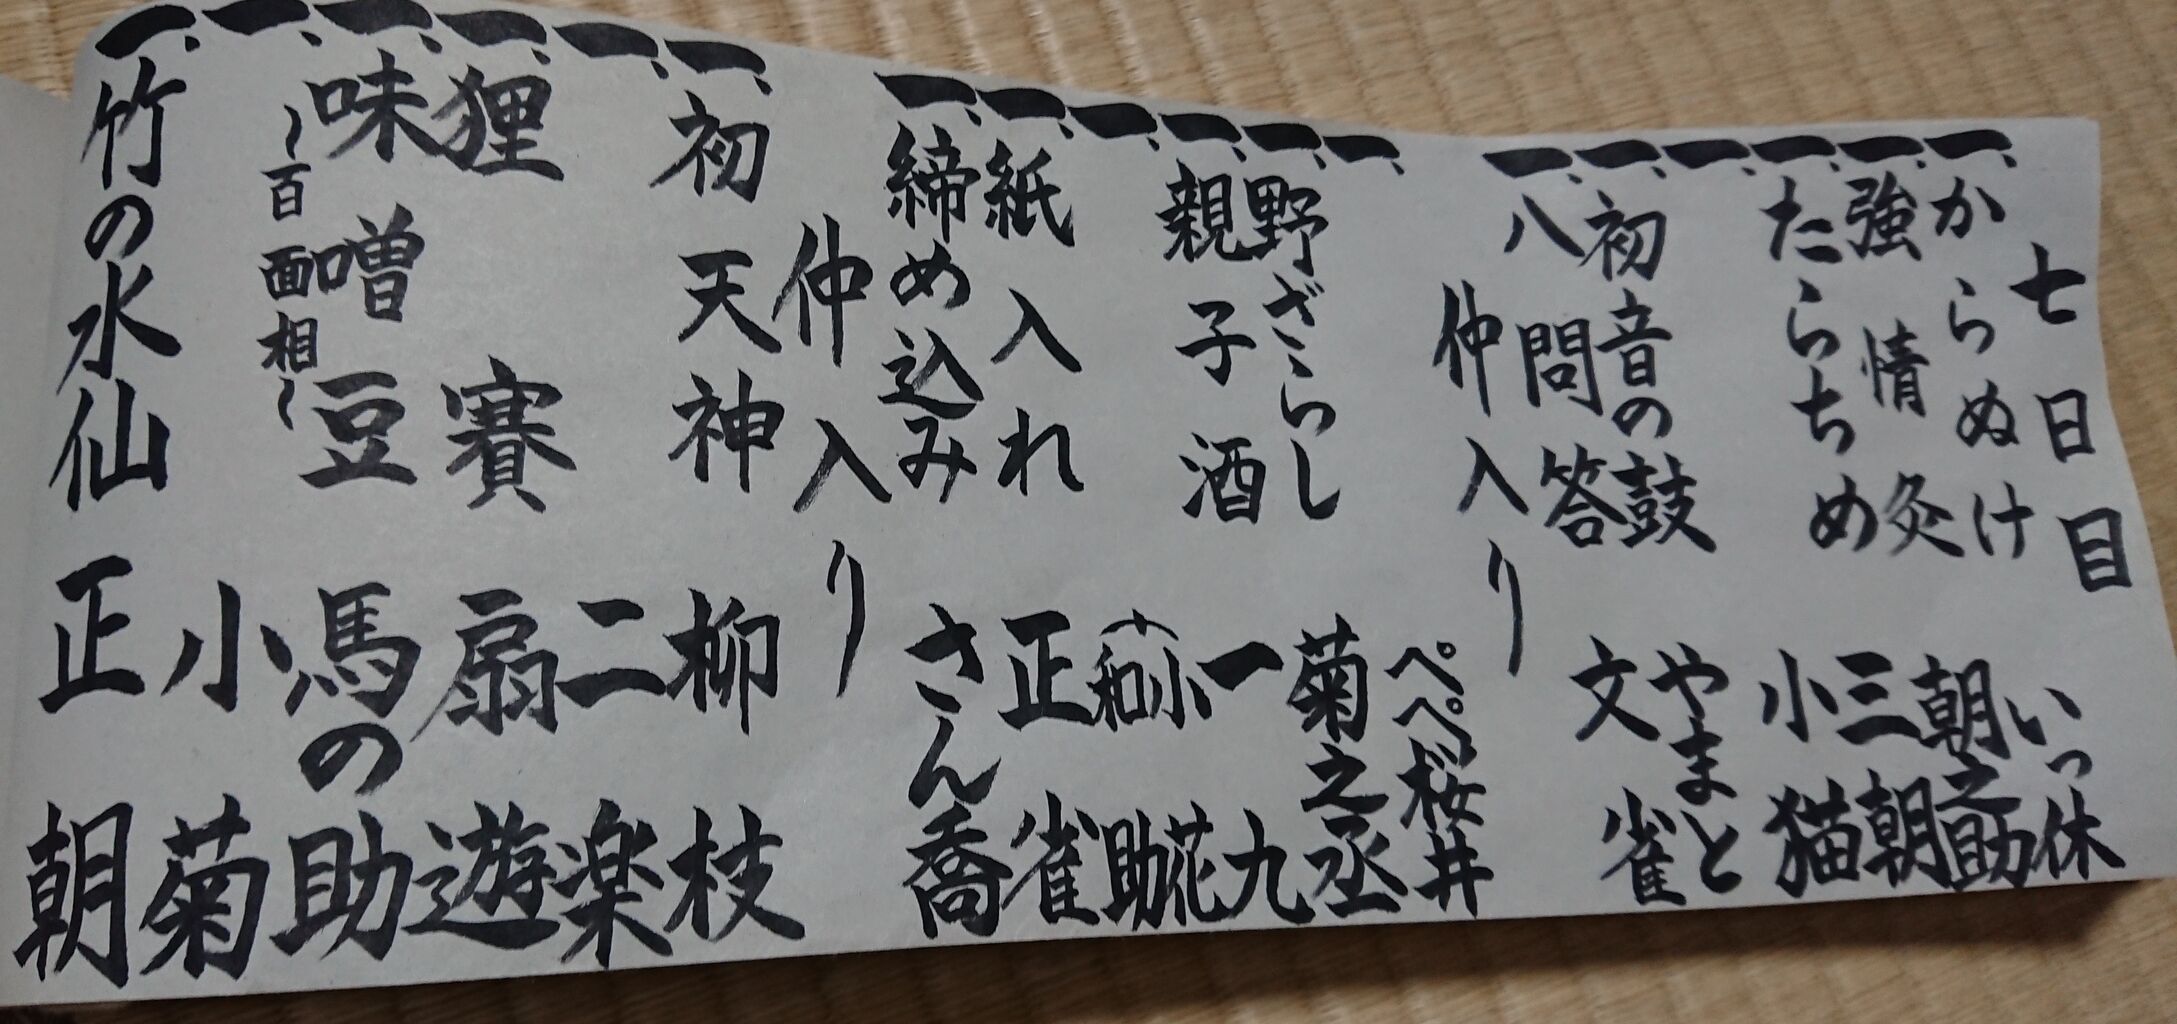 七日目
一、からぬけ いっ休
一、強情灸 朝之助
一、たらちめ 三朝
一、 小猫
一、初音の鼓 やまと
一、八問答 文雀
仲入り
一、 ぺぺ桜井
一、野ざらし 菊之丞
一、親子酒 一九
一、 (小花 和助
一、紙入れ 正雀
一、締め込み さん喬
仲入り
一、初天神 柳枝
一、 二楽
一、狸賽 扇遊
一、味噌豆 馬の助
～百面相～
一、 小菊
一、竹の水仙 正朝